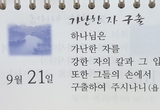 가난한 자 구출
하나님은
가난한 자를
강한 자의 칼과 그 입
또한 그들의 손에서
구출하여 주시나니(욥
9월 21일